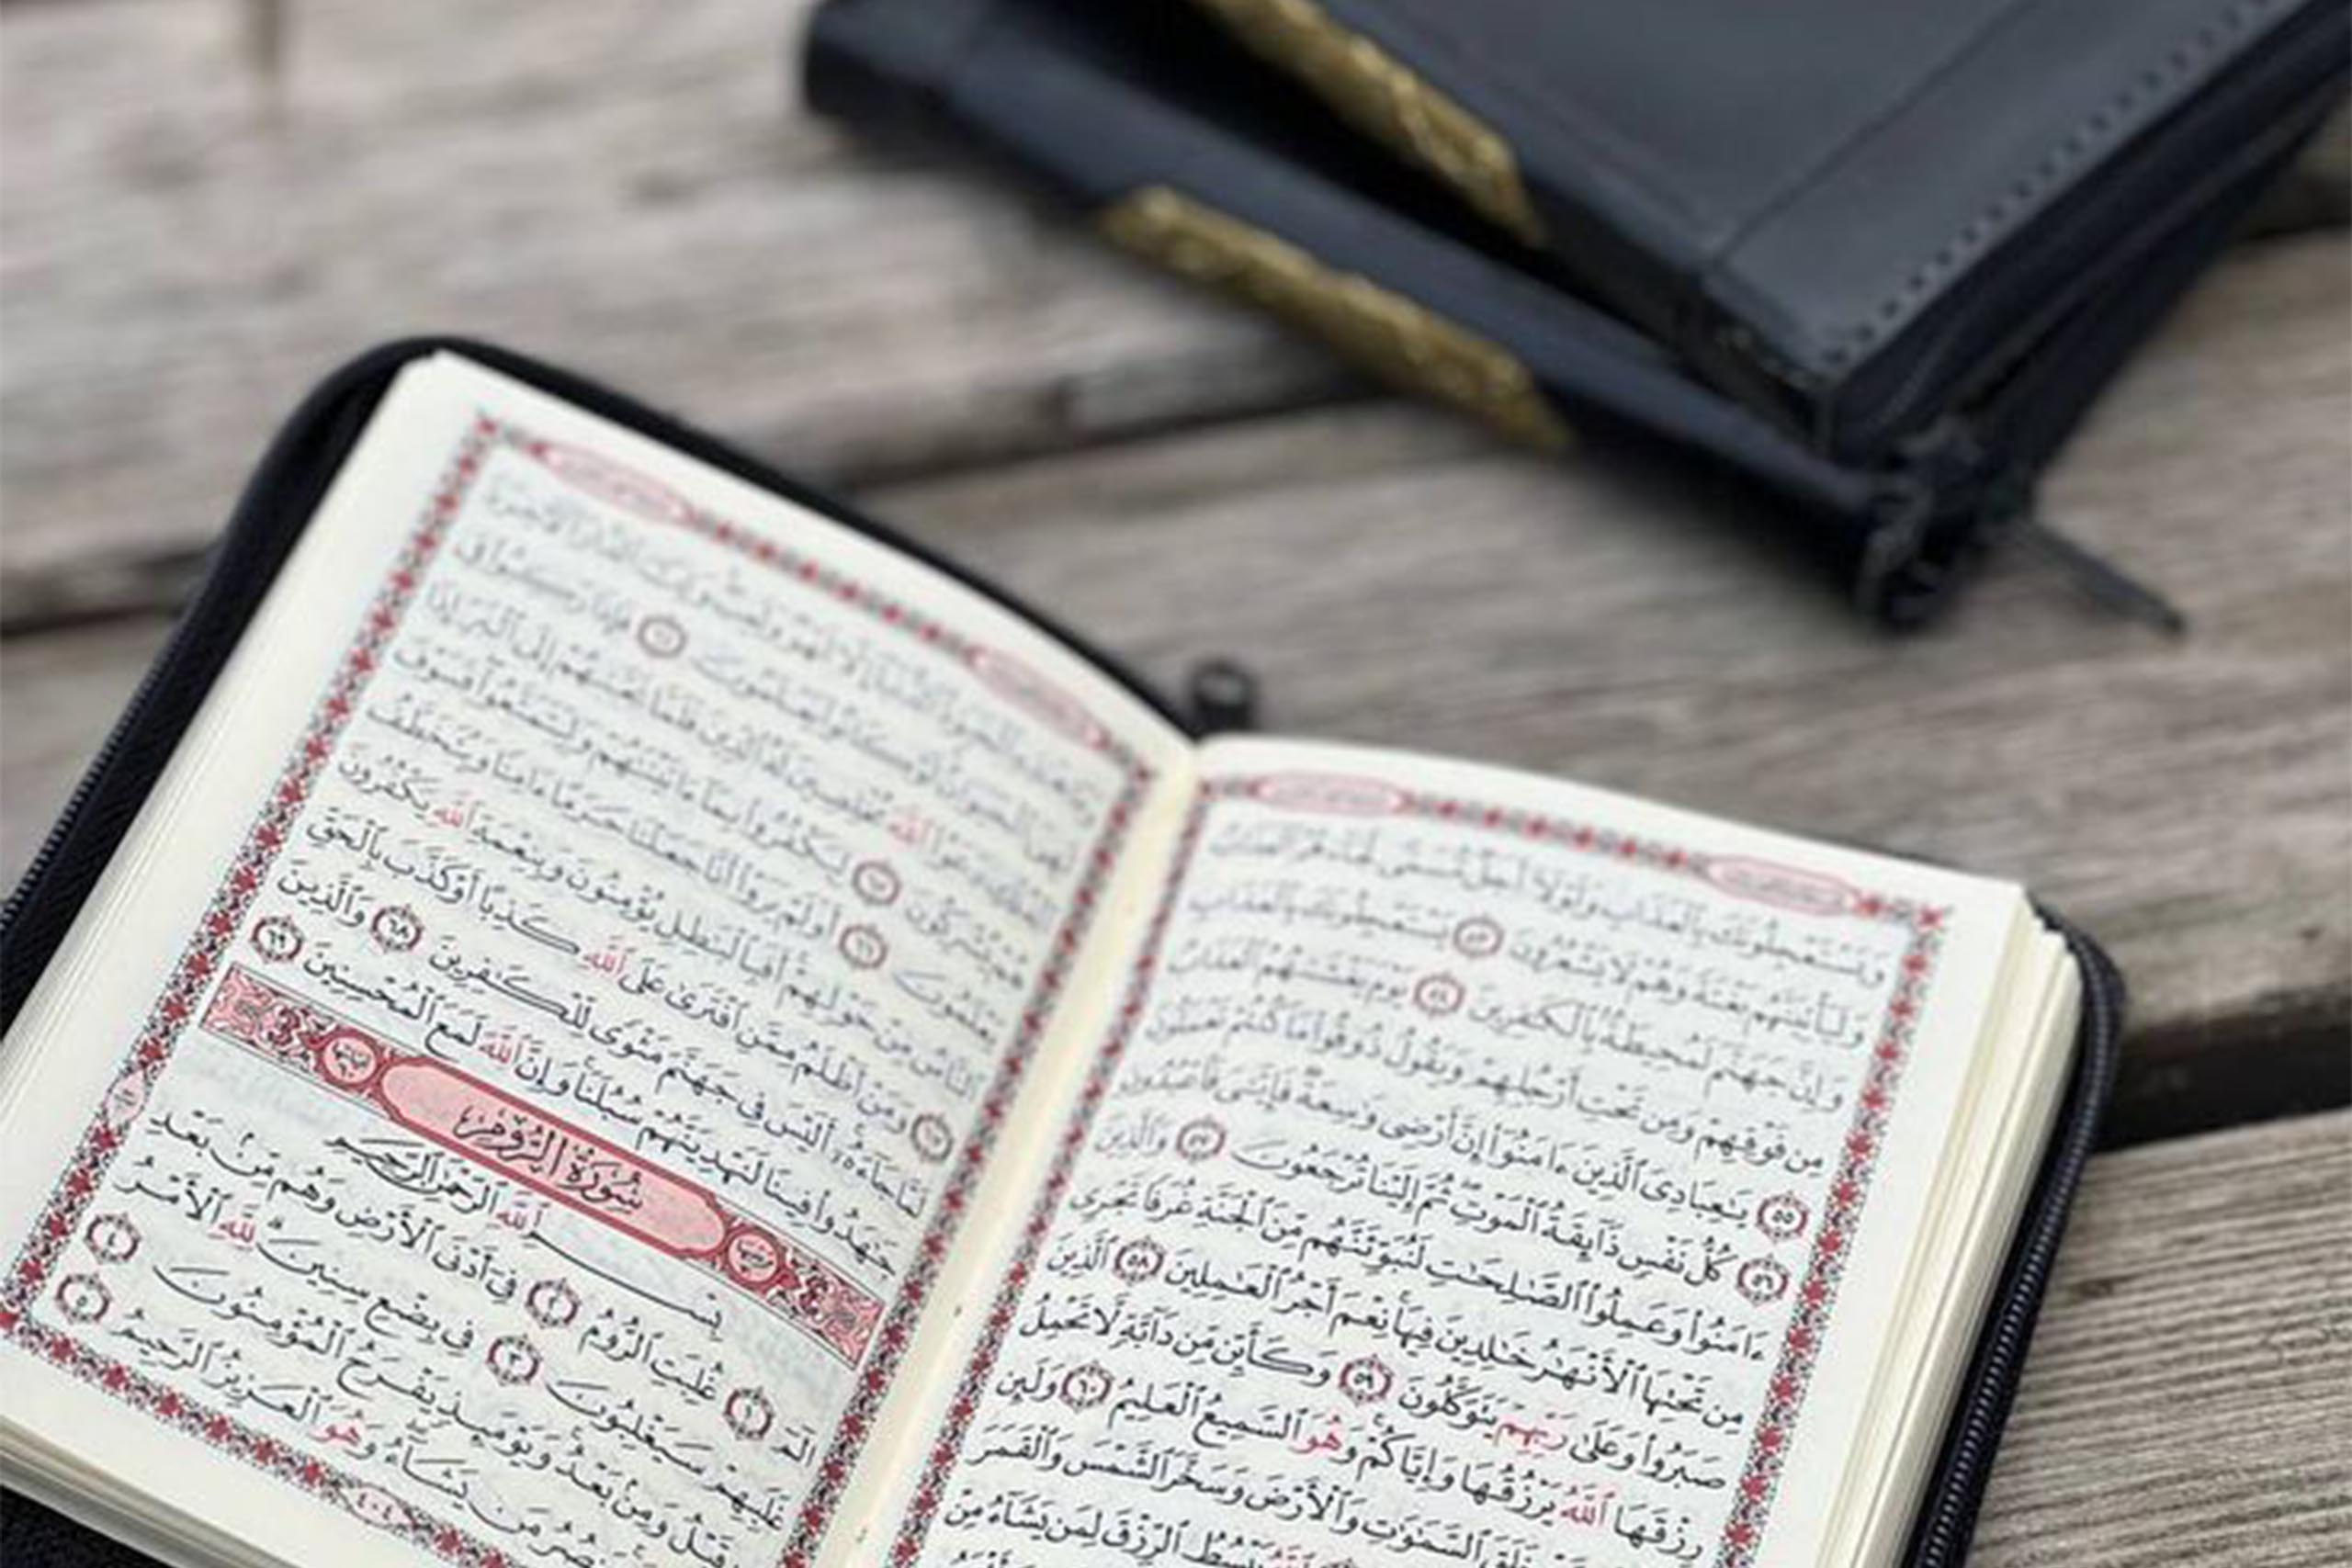 وَيَسْتَعْجِلُونَكَ بِٱلْعَذَابِ وَلَوْلَآ أَجَلٌ مُّسَمًّى لَّجَآءَهُمُ ٱلْعَذَابُ
وَلَيَأْتِيَنَّهُم بَغْتَةً وَهُمْ لَا يَشْعُرُونَ ٥٣ يَسْتَعْجِلُونَكَ بِٱلْعَذَابِ
وَإِنَّ جَهَنَّمَ لَمُحِيطَةٌۢ بِٱلْكَٰفِرِينَ ٥٤ يَوْمَ يَغْشَىٰهُمُ ٱلْعَذَابُ
مِن فَوْقِهِمْ وَمِن تَحْتِ أَرْجُلِهِمْ وَيَقُولُ ذُوقُوا۟ مَا كُنتُمْ تَعْمَلُونَ
٥٥ يَٰعِبَادِىَ ٱلَّذِينَ ءَامَنُوٓا۟ إِنَّ أَرْضِى وَٰسِعَةٌ فَإِيَّٰىَ فَٱعْبُدُونِ
٥٦ كُلُّ نَفْسٍ ذَآئِقَةُ ٱلْمَوْتِ ثُمَّ إِلَيْنَا تُرْجَعُونَ ٥٧ وَٱلَّذِينَ
ءَامَنُوا۟ وَعَمِلُوا۟ ٱلصَّٰلِحَٰتِ لَنُبَوِّئَنَّهُم مِّنَ ٱلْجَنَّةِ غُرَفًا تَجْرِى
مِن تَحْتِهَا ٱلْأَنْهَٰرُ خَٰلِدِينَ فِيهَا نِعْمَ أَجْرُ ٱلْعَٰمِلِينَ ٥٨ ٱلَّذِينَ
صَبَرُوا۟ وَعَلَىٰ رَبِّهِمْ يَتَوَكَّلُونَ ٥٩ وَكَأَيِّن مِّن دَآبَّةٍ لَّا تَحْمِلُ
رِزْقَهَا ٱللَّهُ يَرْزُقُهَا وَإِيَّاكُمْ وَهُوَ ٱلسَّمِيعُ ٱلْعَلِيمُ ٦٠ وَلَئِن
خَلَقَ ٱلسَّمَٰوَٰتِ وَٱلْأَرْضَ وَسَخَّرَ ٱلشَّمْسَ وَٱلْقَمَرَ
يَبْسُطُ ٱلرِّزْقَ لِمَن يَشَآءُ مِنْ
وَمَا هَٰذِهِ ٱلْحَيَوٰةُ ٱلدُّنْيَآ إِلَّا لَهْوٌ وَلَعِبٌ وَإِنَّ ٱلدَّارَ ٱلْءَاخِرَةَ
لَهِىَ ٱلْحَيَوَانُ لَوْ كَانُوا۟ يَعْلَمُونَ ٦٤ فَإِذَا رَكِبُوا۟ فِى
ٱلْفُلْكِ دَعَوُا۟ ٱللَّهَ مُخْلِصِينَ لَهُ ٱلدِّينَ فَلَمَّا نَجَّىٰهُمْ إِلَى ٱلْبَرِّ إِذَا
هُمْ يُشْرِكُونَ ٦٥ لِيَكْفُرُوا۟ بِمَآ ءَاتَيْنَٰهُمْ وَلِيَتَمَتَّعُوا۟ فَسَوْفَ
يَعْلَمُونَ ٦٦ أَوَلَمْ يَرَوْا۟ أَنَّا جَعَلْنَا حَرَمًا ءَامِنًا وَيُتَخَطَّفُ
ٱلنَّاسُ مِنْ حَوْلِهِمْ أَفَبِٱلْبَٰطِلِ يُؤْمِنُونَ وَبِنِعْمَةِ ٱللَّهِ يَكْفُرُونَ
٦٧ وَمَنْ أَظْلَمُ مِمَّنِ ٱفْتَرَىٰ عَلَى ٱللَّهِ كَذِبًا أَوْ كَذَّبَ بِٱلْحَقِّ
لَمَّا جَآءَهُۥٓ أَلَيْسَ فِى جَهَنَّمَ مَثْوًى لِّلْكَٰفِرِينَ ٦٨ وَٱلَّذِينَ
جَٰهَدُوا۟ فِينَا لَنَهْدِيَنَّهُمْ سُبُلَنَا وَإِنَّ ٱللَّهَ لَمَعَ ٱلْمُحْسِنِينَ ٦٩
سُورَةُ الرُّومِ
بِسْمِ ٱللَّهِ ٱلرَّحْمَٰنِ ٱلرَّحِيمِ
الٓمٓ ١ غُلِبَتِ ٱلرُّومُ ٢ فِىٓ أَدْنَى ٱلْأَرْضِ وَهُم مِّنۢ بَعْدِ
غَلَبِهِمْ سَيَغْلِبُونَ ٣ فِى بِضْعِ سِنِينَ لِلَّهِ ٱلْأَمْرُ
قَبْلُ وَمِنۢ بَعْدُ وَيَوْمَئِذٍ يَفْرَحُ ٱلْمُؤْمِنُونَ ٤
يَنصُرُ مَن يَشَآءُ وَهُوَ ٱلْعَزِيزُ ٱلرَّحِيمُ ٥
٤٠٤